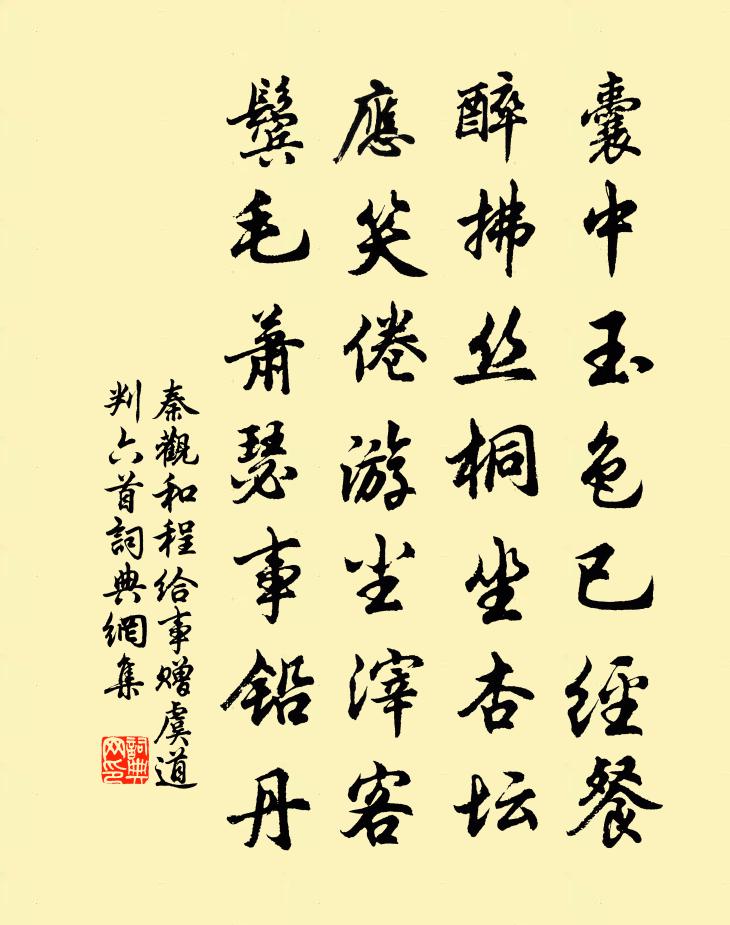 囊中玉色已經餐
醉拂丝桐坐杏坛
應笑倦游尘滓客
鬓毛萧瑟事铅丹
秦觀和程给事赠虞道
判六首詞典網集
詞典网印